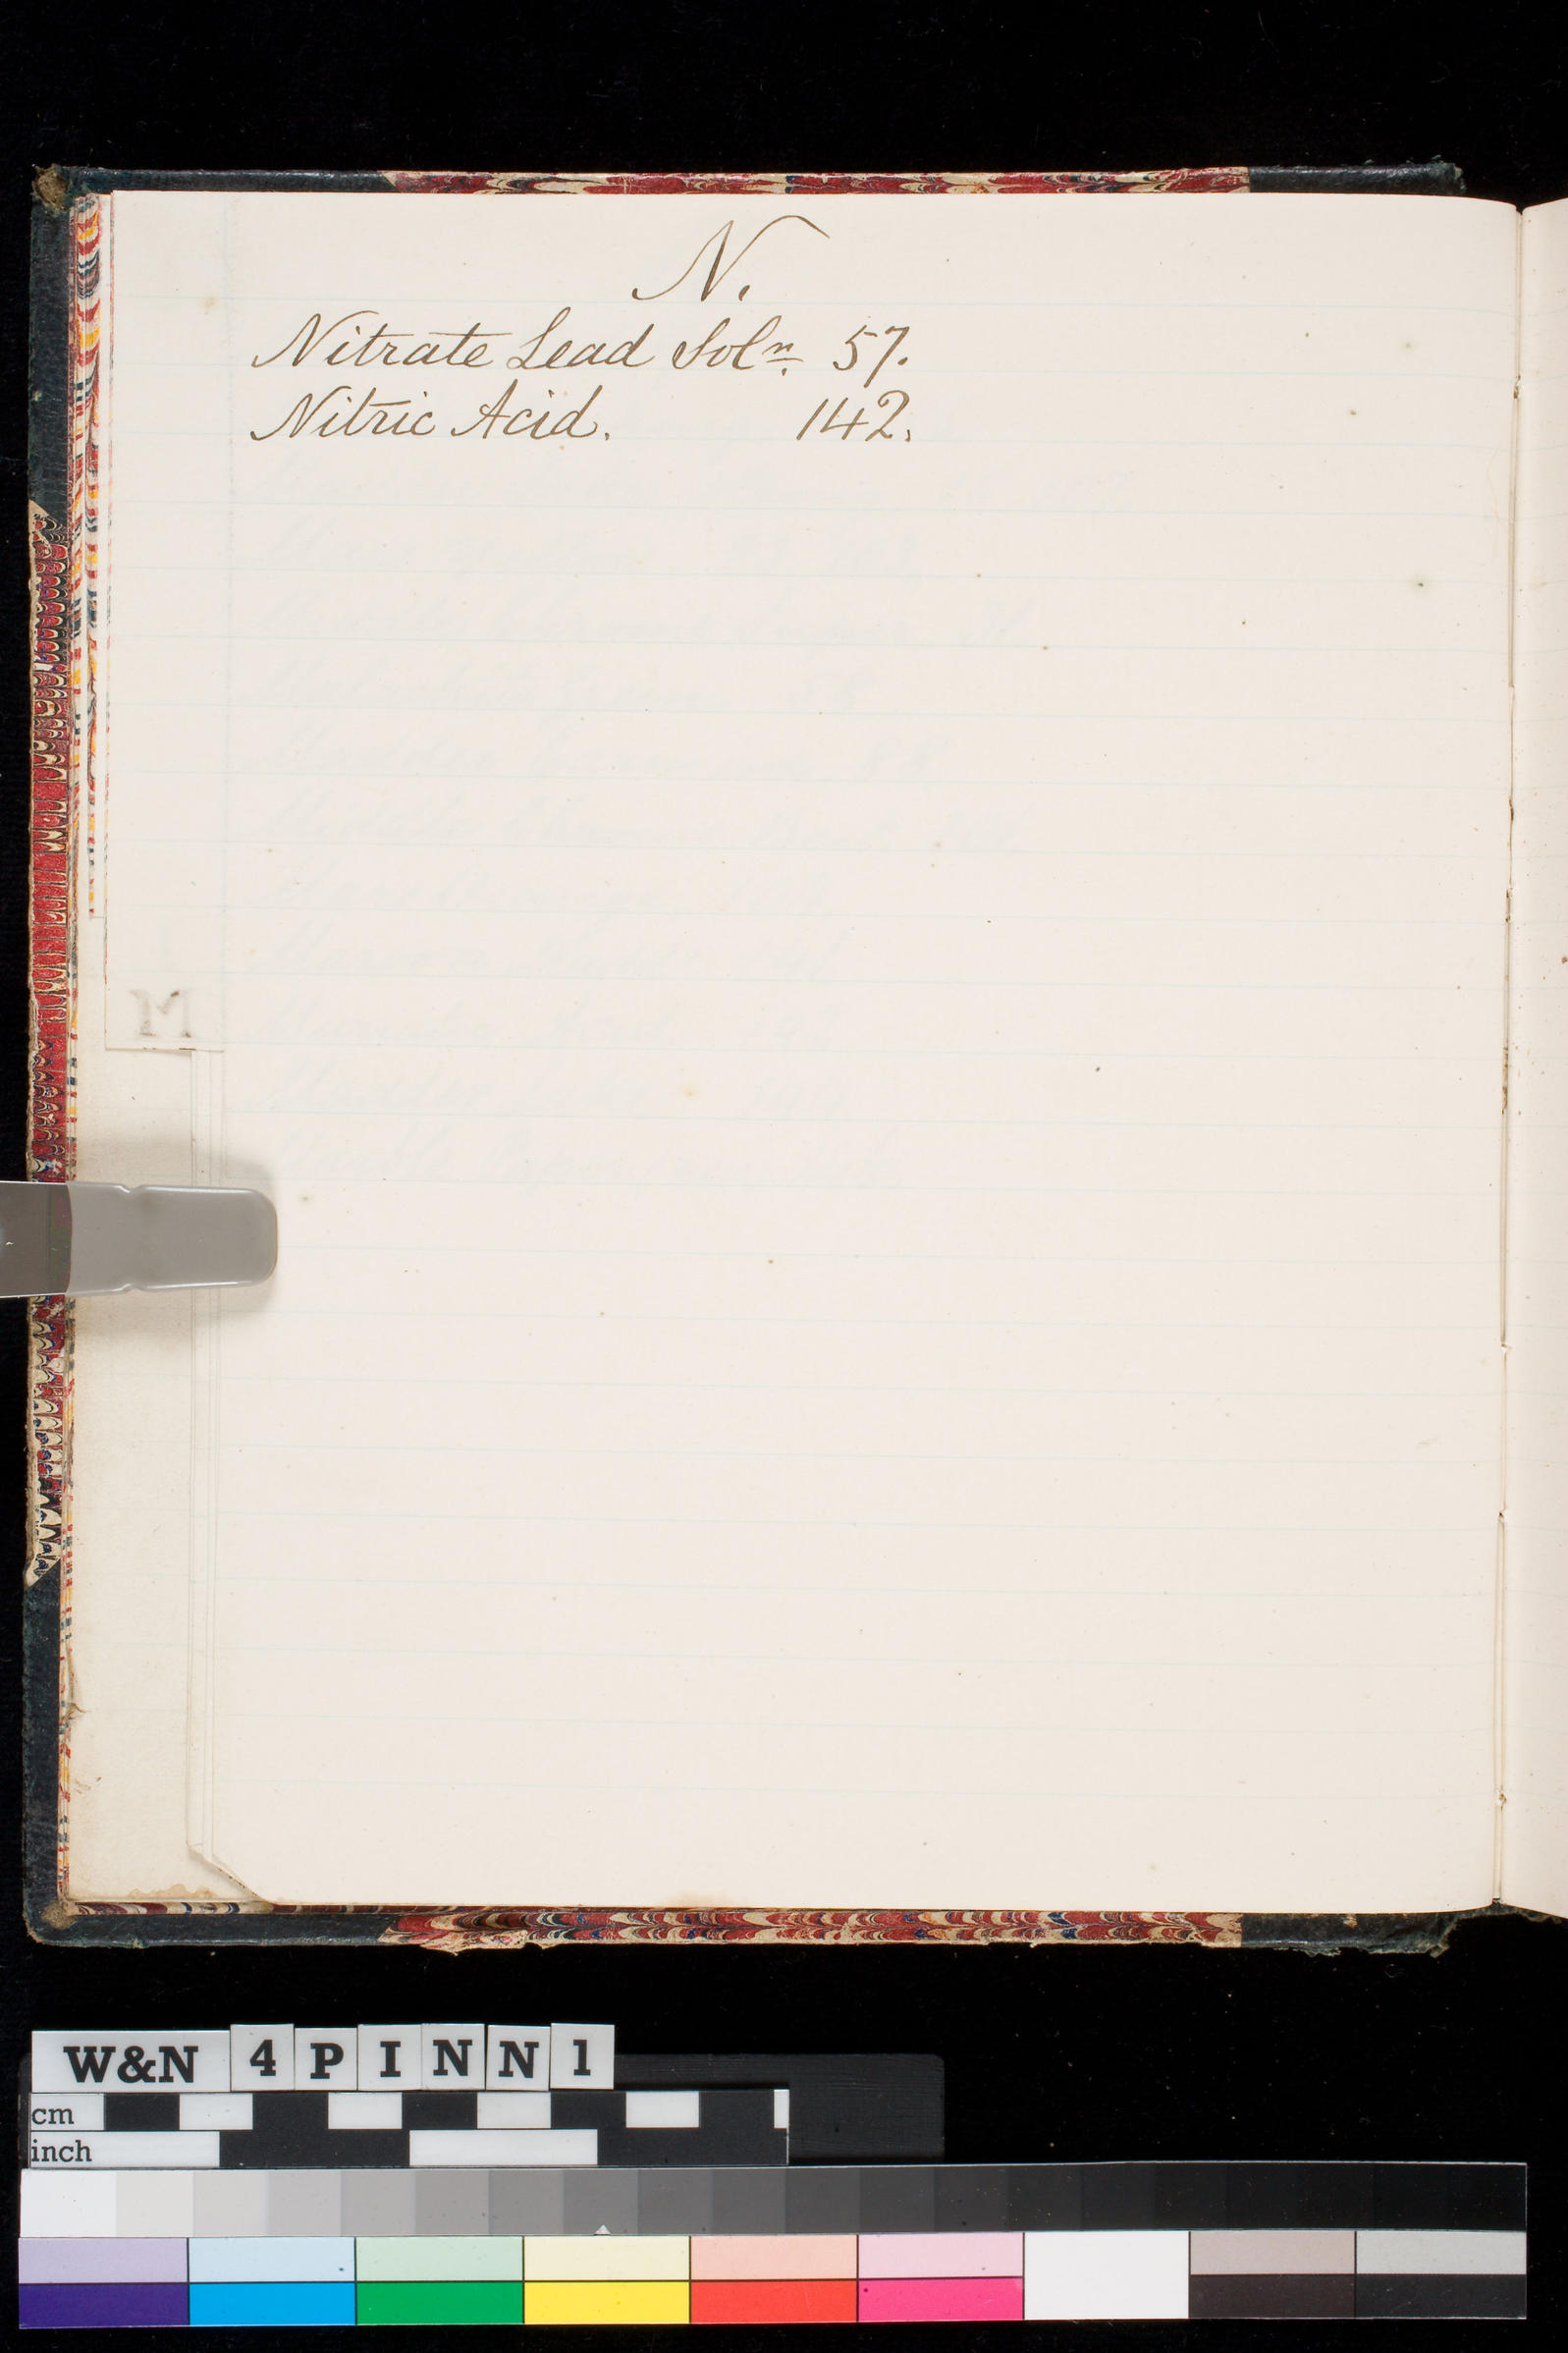 N.
Nitrate Lead Soln. 57.
Nitric Acid. 142.
M
W&N 4PINN1
cm
inch